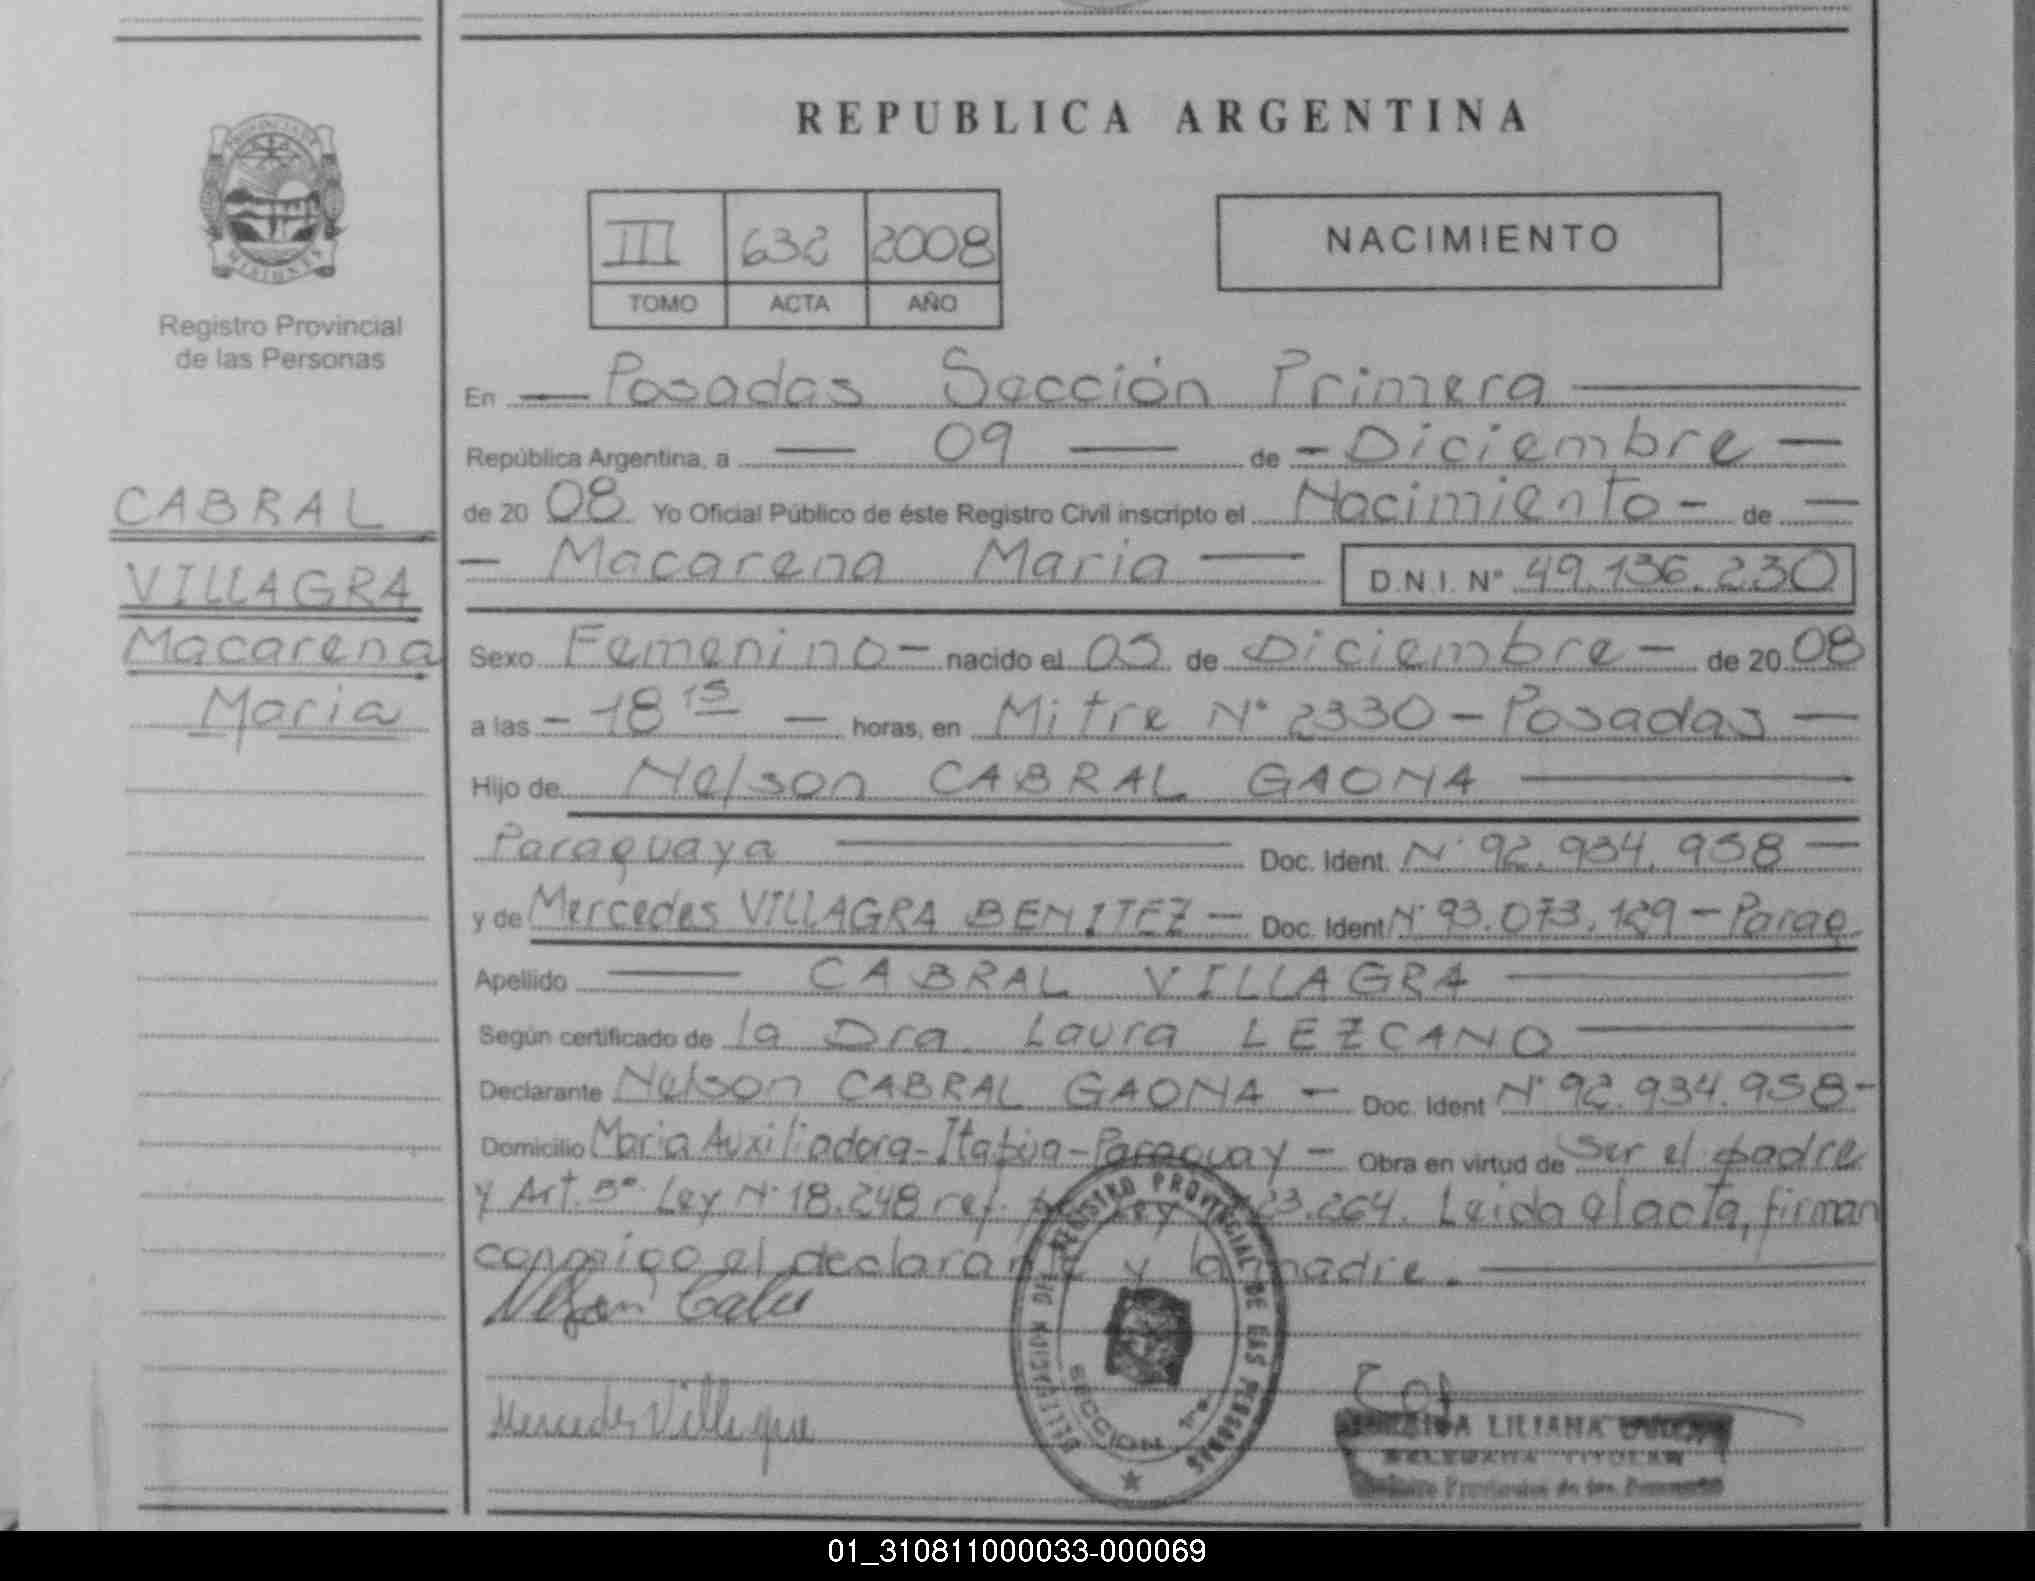 REPUBLICA ARGENTINA
PROVINCIA DE
MISIONES
Registro Provincial
de las Personas
III 632 2008
TOMO ACTA AÑO
NACIMIENTO
CABRAL
VILLAGRA
Macarena
Maria
En — Posadas Sección Primera —
República Argentina, a — 09 — de - Diciembre —
de 20 08 Yo Oficial Público de éste Registro Civil inscripto el Nacimiento - de —
— Macarena Maria — D.N.I. Nº 49.136.230
Sexo Femenino - nacido el 05 de Diciembre - de 20 08
a las - 18 15 — horas, en Mitre Nº 2330 - Posadas —
Hijo de Nelson CABRAL GAONA —
Paraguaya — Doc. Ident. Nº 92.934.958 —
y de Mercedes VILLAGRA BENITEZ - Doc. Ident Nº 93.073.129 - Parag.
Apellido — CABRAL VILLAGRA —
Según certificado de la Dra. Laura LEZCANO —
Declarante Nelson CABRAL GAONA - Doc. Ident Nº 92.934.958 -
Domicilio Maria Auxiliadora - Itapúa - Paraguay - Obra en virtud de Ser el padre
y Art. 5º Ley Nº 18.248 ref. por Ley 23.264. Leida el acta, firman
conmigo el declarante y la madre. —
Nelson Cabral
Mercedes Villagra
REGISTRO PROVINCIAL DE LAS PERSONAS
SECCION 1ra.
LILIANA
TITULAR
01_310811000033-000069